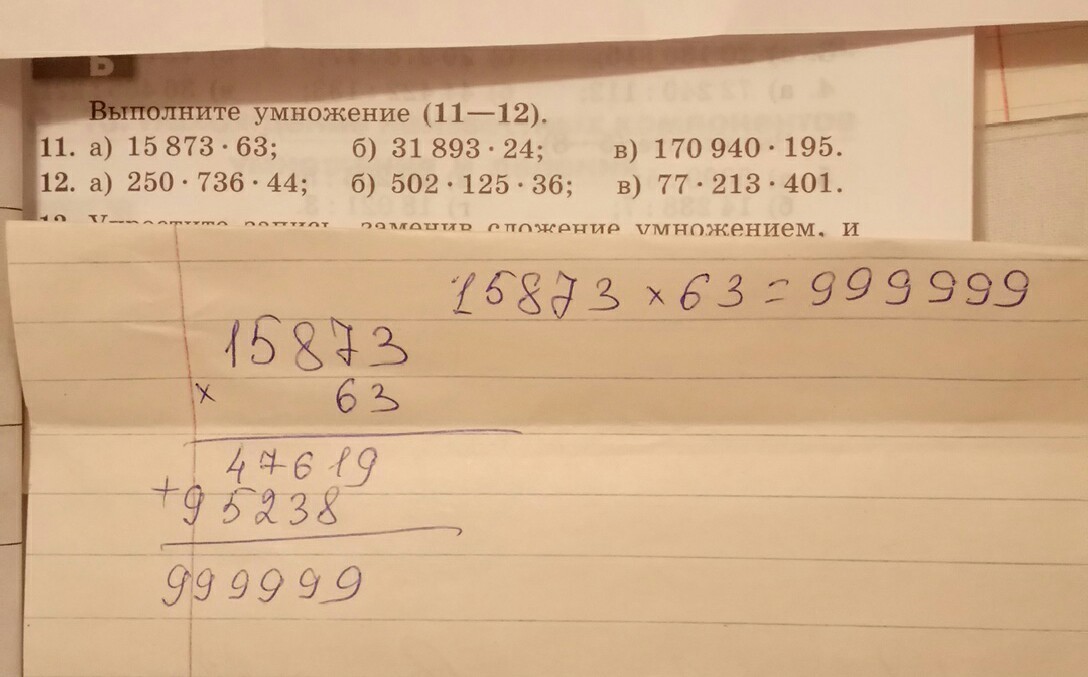 Б
Выполните умножение (11—12).
11. а) 15 873 · 63; б) 31 893 · 24; в) 170 940 · 195.
12. а) 250 · 736 · 44; б) 502 · 125 · 36; в) 77 · 213 · 401.
13. Упростите запись, заменив сложение умножением, и
15873 × 63 = 999999
15873
× 63
47619
+95238
999999